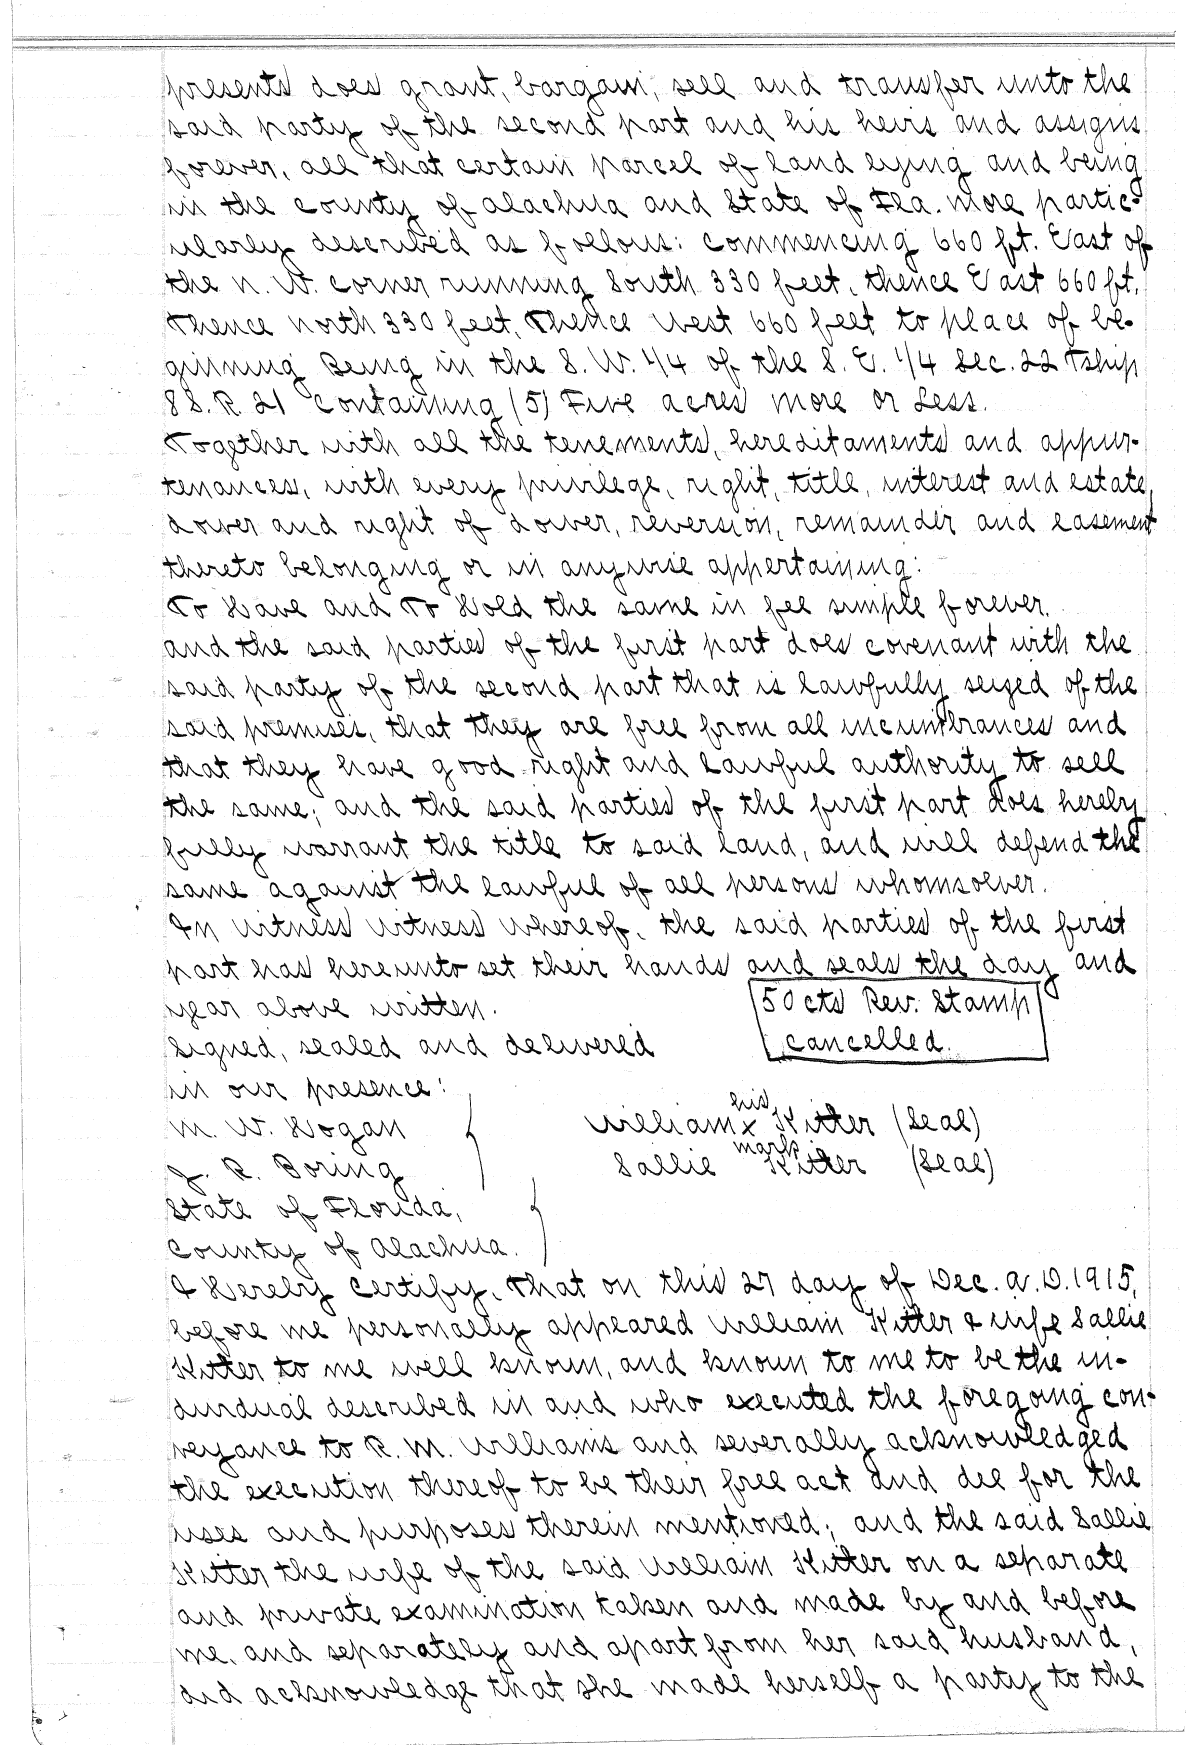 presents does grant, bargain, sell and transfer unto the
said party of the second part and his heirs and assigns
forever, all that certain parcel of land lying and being
in the county of Alachua and State of Fla. more partic-
ularly described as follows: commencing 660 ft. East of
the N. W. corner running South 330 feet, thence East 660 ft,
thence North 330 feet, thence West 660 feet to place of be-
ginning Being in the S. W. 1/4 of the S. E. 1/4 Sec. 22 Tship
8 S. R. 21 containing (5) Five acres more or less.
Together with all the tenements, hereditaments and appur-
tenances, with every privilege, right, title, interest and estate,
dower and right of dower, reversion, remainder and easement
thereto belonging or in anywise appertaining:
To Have and To Hold the same in fee simple forever.
and the said parties of the first part does covenant with the
said party of the second part that is lawfully seized of the
said premises, that they are free from all incumbrances and
that they have good right and lawful authority to sell
the same; and the said parties of the first part does hereby
fully warrant the title to said land, and will defend the
same against the lawful of all persons whomsoever.
In witness witness whereof, the said parties of the first
part has hereunto set their hands and seals the day and
year above written.
50 cts Rev. Stamp
cancelled.
Signed, sealed and delivered
in our presence:
M. W. Hogan
William his x mark Kitter (Seal)
J. R. Boring
Sallie Kitter (Seal)
State of Florida,
County of Alachua.
I Hereby Certify, That on this 27 day of Dec. A. D. 1915,
before me personally appeared William Kitter & wife Sallie
Kitter to me well known, and known to me to be the in-
dividual described in and who executed the foregoing con-
veyance to R. M. Williams and severally acknowledged
the execution thereof to be their free act and dee for the
uses and purposes therein mentioned; and the said Sallie
Kitter the wife of the said William Kitter on a separate
and private examination taken and made by and before
me, and separately and apart from her said husband,
did acknowledge that she made herself a party to the